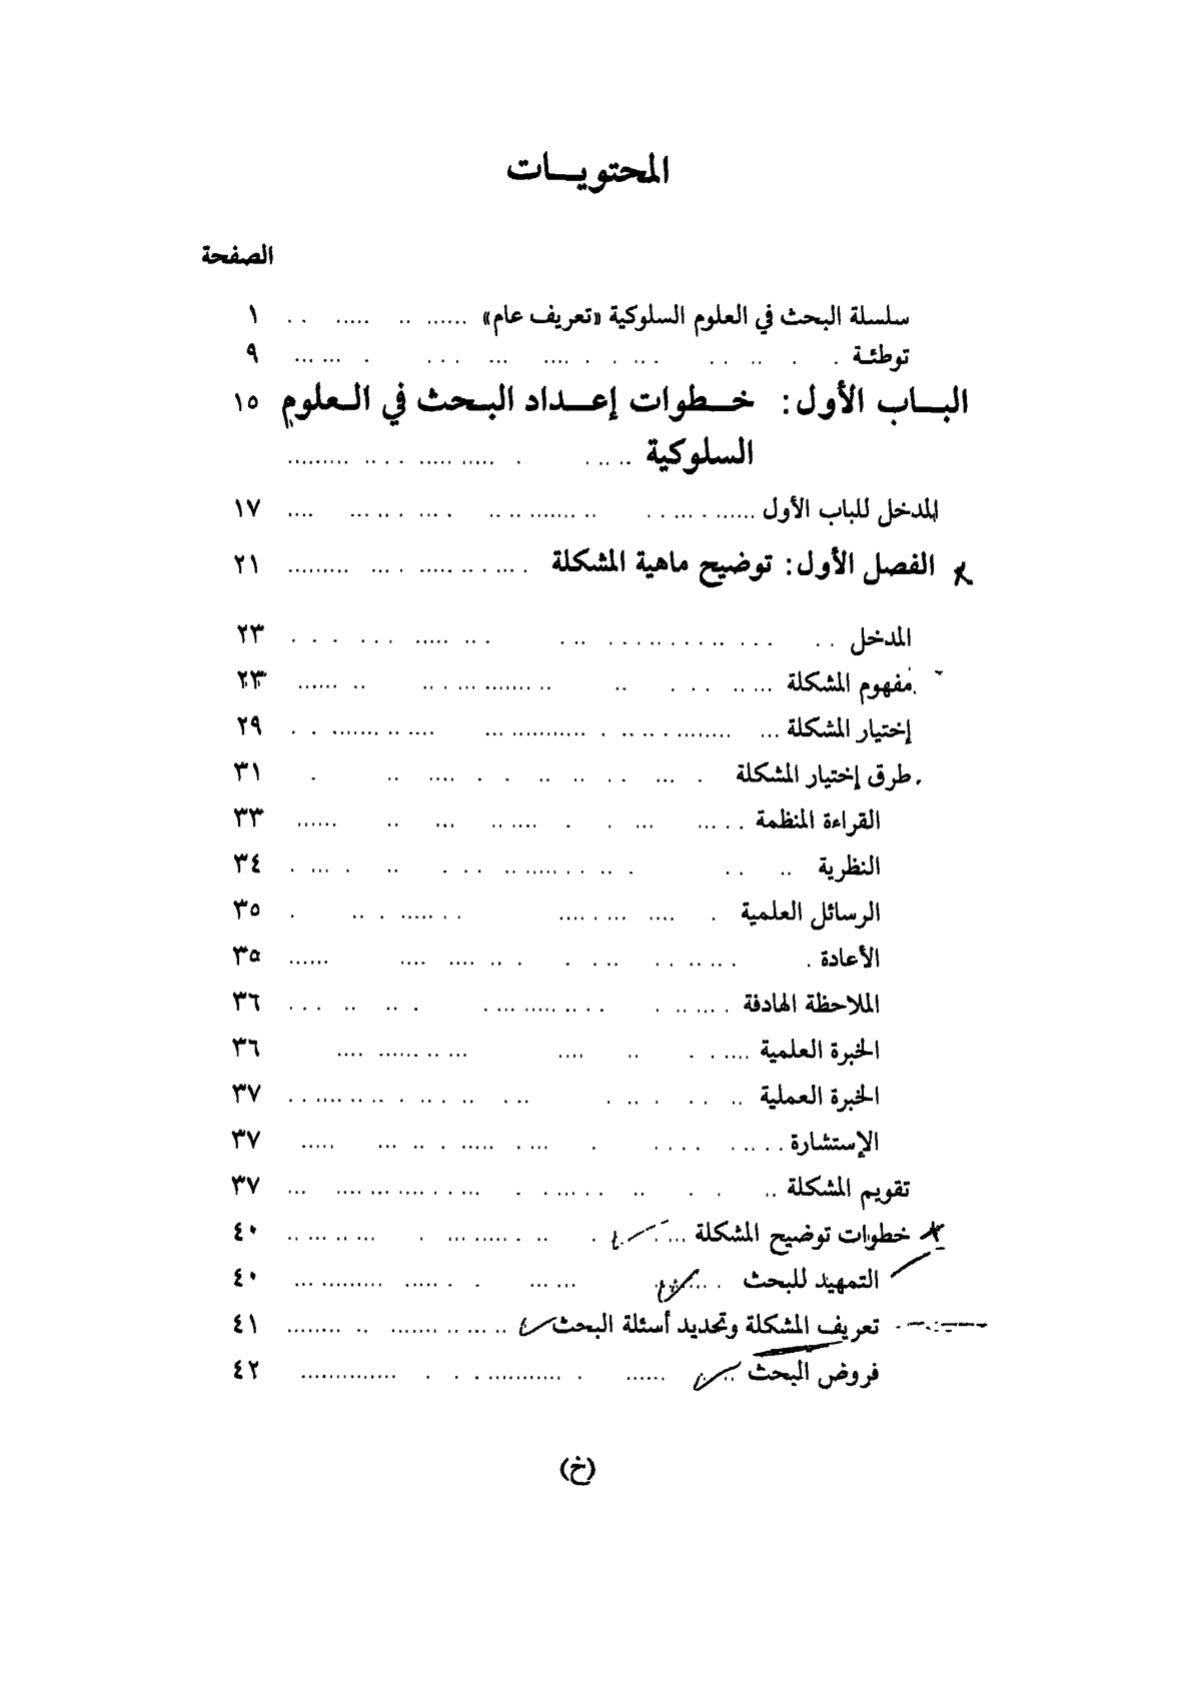 المحتويـــات
الصفحة
سلسلة البحث في العلوم السلوكية «تعريف عام» ١
توطئـة ٩
البـــاب الأول: خـــطوات إعـــداد البـحث في الـعلوم ١٥
السلوكية
المدخل للباب الأول ١٧
الفصل الأول: توضيح ماهية المشكلة ٢١
المدخل ٢٣
مفهوم المشكلة ٢٣
إختيار المشكلة ٢٩
طرق إختيار المشكلة ٣١
القراءة المنظمة ٣٣
النظرية ٣٤
الرسائل العلمية ٣٥
الأعادة ٣٥
الملاحظة الهادفة ٣٦
الخبرة العلمية ٣٦
الخبرة العملية ٣٧
الإستشارة ٣٧
تقويم المشكلة ٣٧
خطوات توضيح المشكلة ٤٠
التمهيد للبحث ٤٠
تعريف المشكلة وتحديد أسئلة البحث ٤١
فروض البحث ٤٢
(خ)